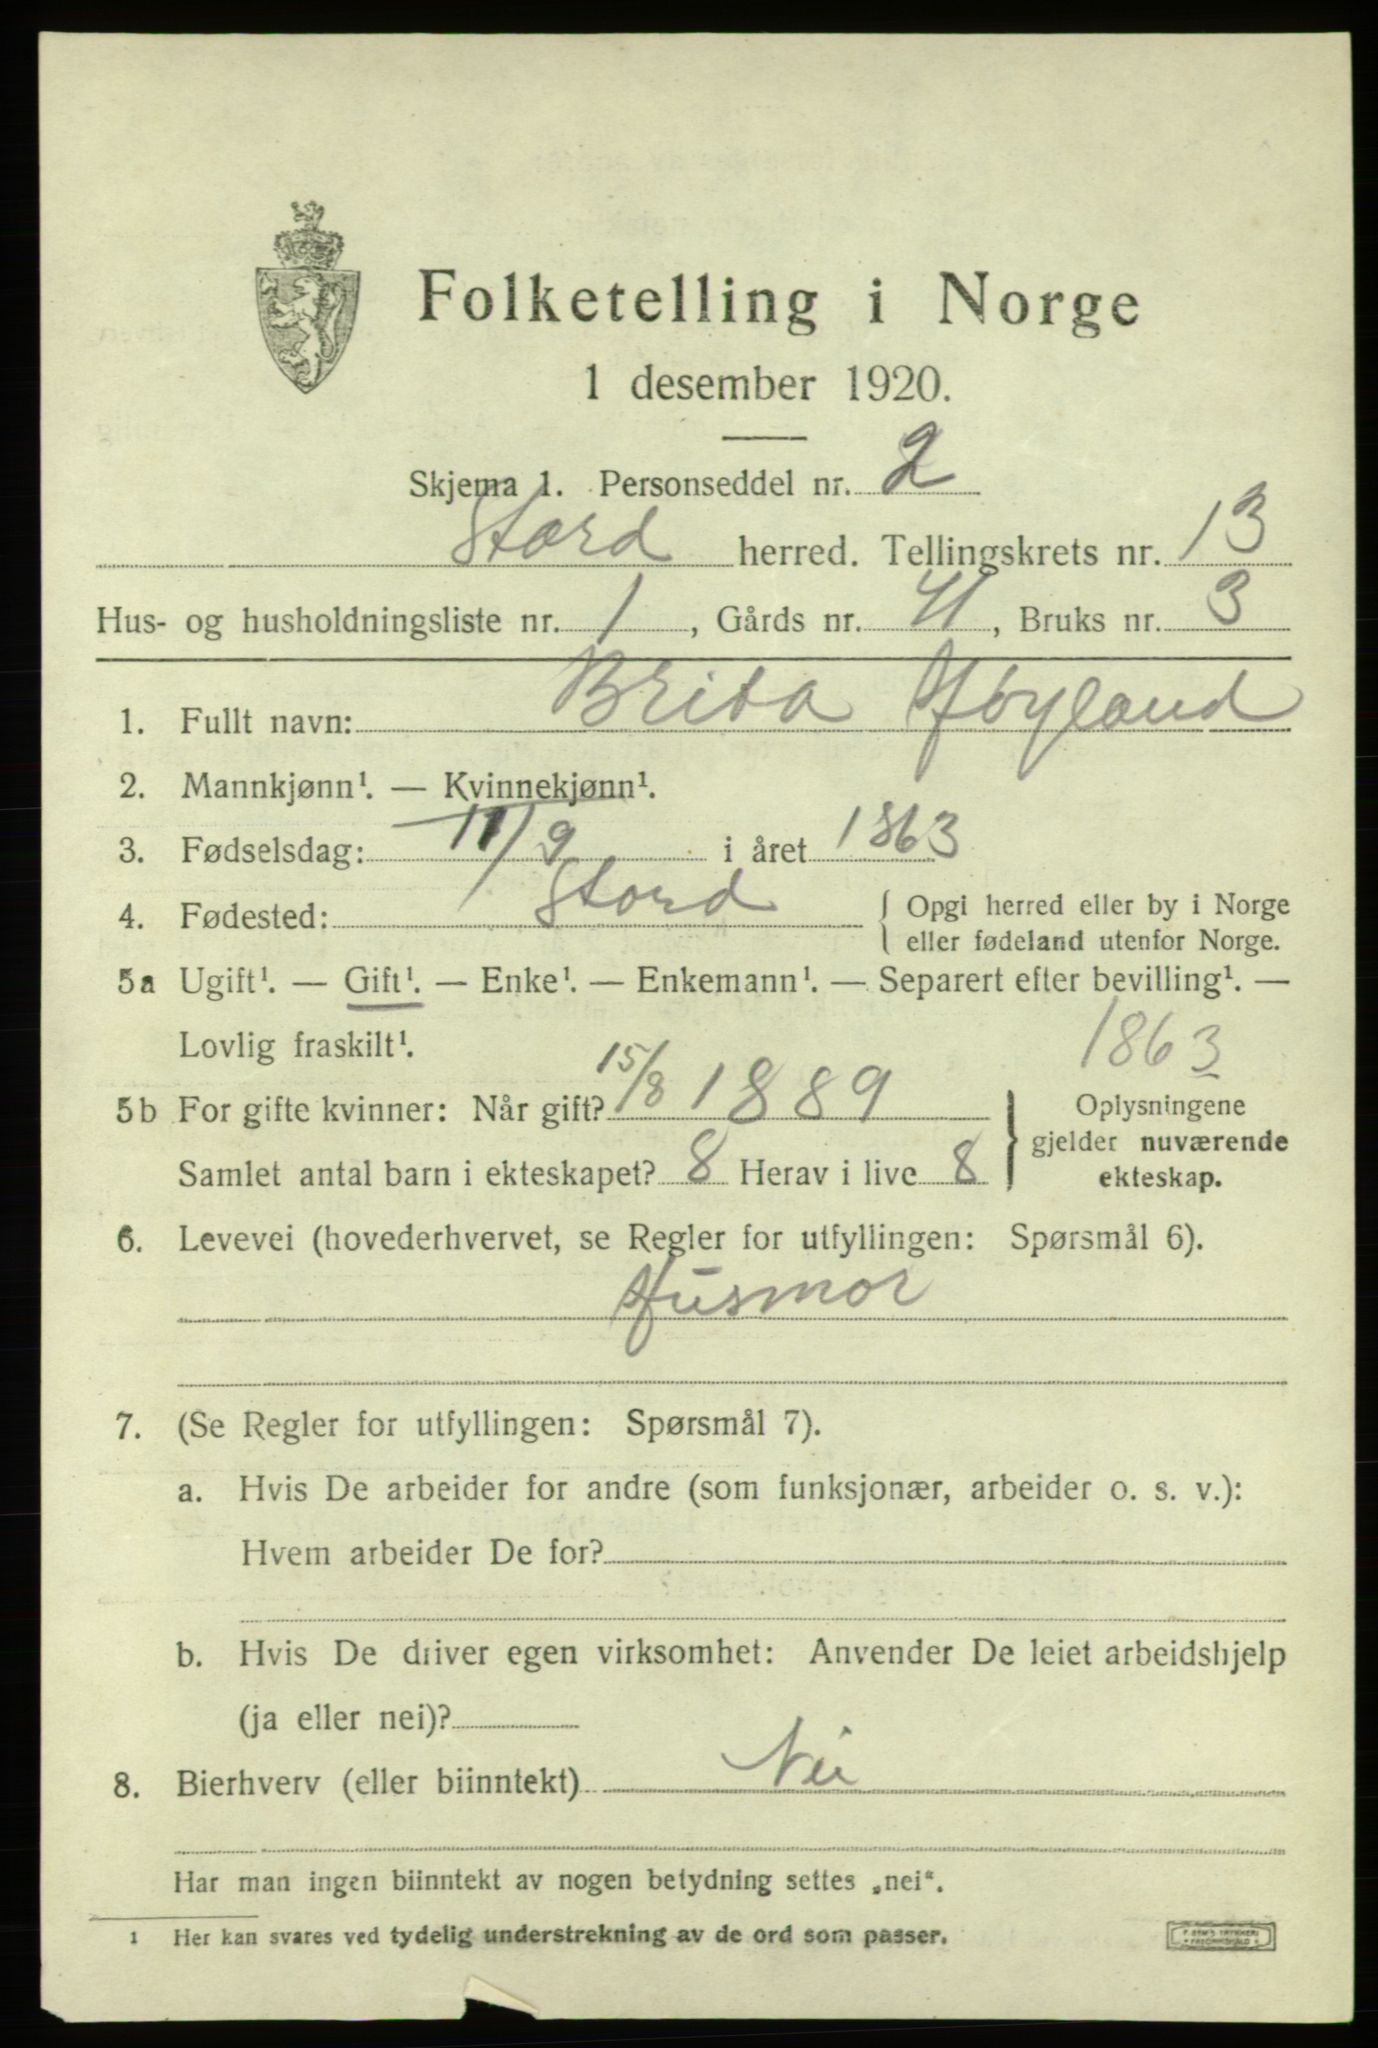 Folketelling i Norge
1 desember 1920.
Skjema 1. Personseddel nr. 2
Stord herred. Tellingskrets nr. 13
Hus- og husholdningsliste nr. 1, Gårds nr. 41, Bruks nr. 3
1. Fullt navn: Brita Høyland
2. Mannkjønn¹. — Kvinnekjønn¹.
3. Fødselsdag: 11/9 i året 1863
4. Fødested: Stord { Opgi herred eller by i Norge
eller fødeland utenfor Norge.
5a Ugift¹. — Gift¹. — Enke¹. — Enkemann¹. — Separert efter bevilling¹. —
Lovlig fraskilt¹. 1863
5b For gifte kvinner: Når gift? 15/8 1889
Samlet antal barn i ekteskapet? 8 Herav i live 8
} Oplysningene
gjelder nuværende
ekteskap.
6. Levevei (hovederhvervet, se Regler for utfyllingen: Spørsmål 6).
Husmor
7. (Se Regler for utfyllingen: Spørsmål 7).
a. Hvis De arbeider for andre (som funksjonær, arbeider o. s. v.):
Hvem arbeider De for?
b. Hvis De driver egen virksomhet: Anvender De leiet arbeidshjelp
(ja eller nei)?
8. Bierhverv (eller biinntekt) Nei
Har man ingen biinntekt av nogen betydning settes „nei“.
1 Her kan svares ved tydelig understrekning av de ord som passer.